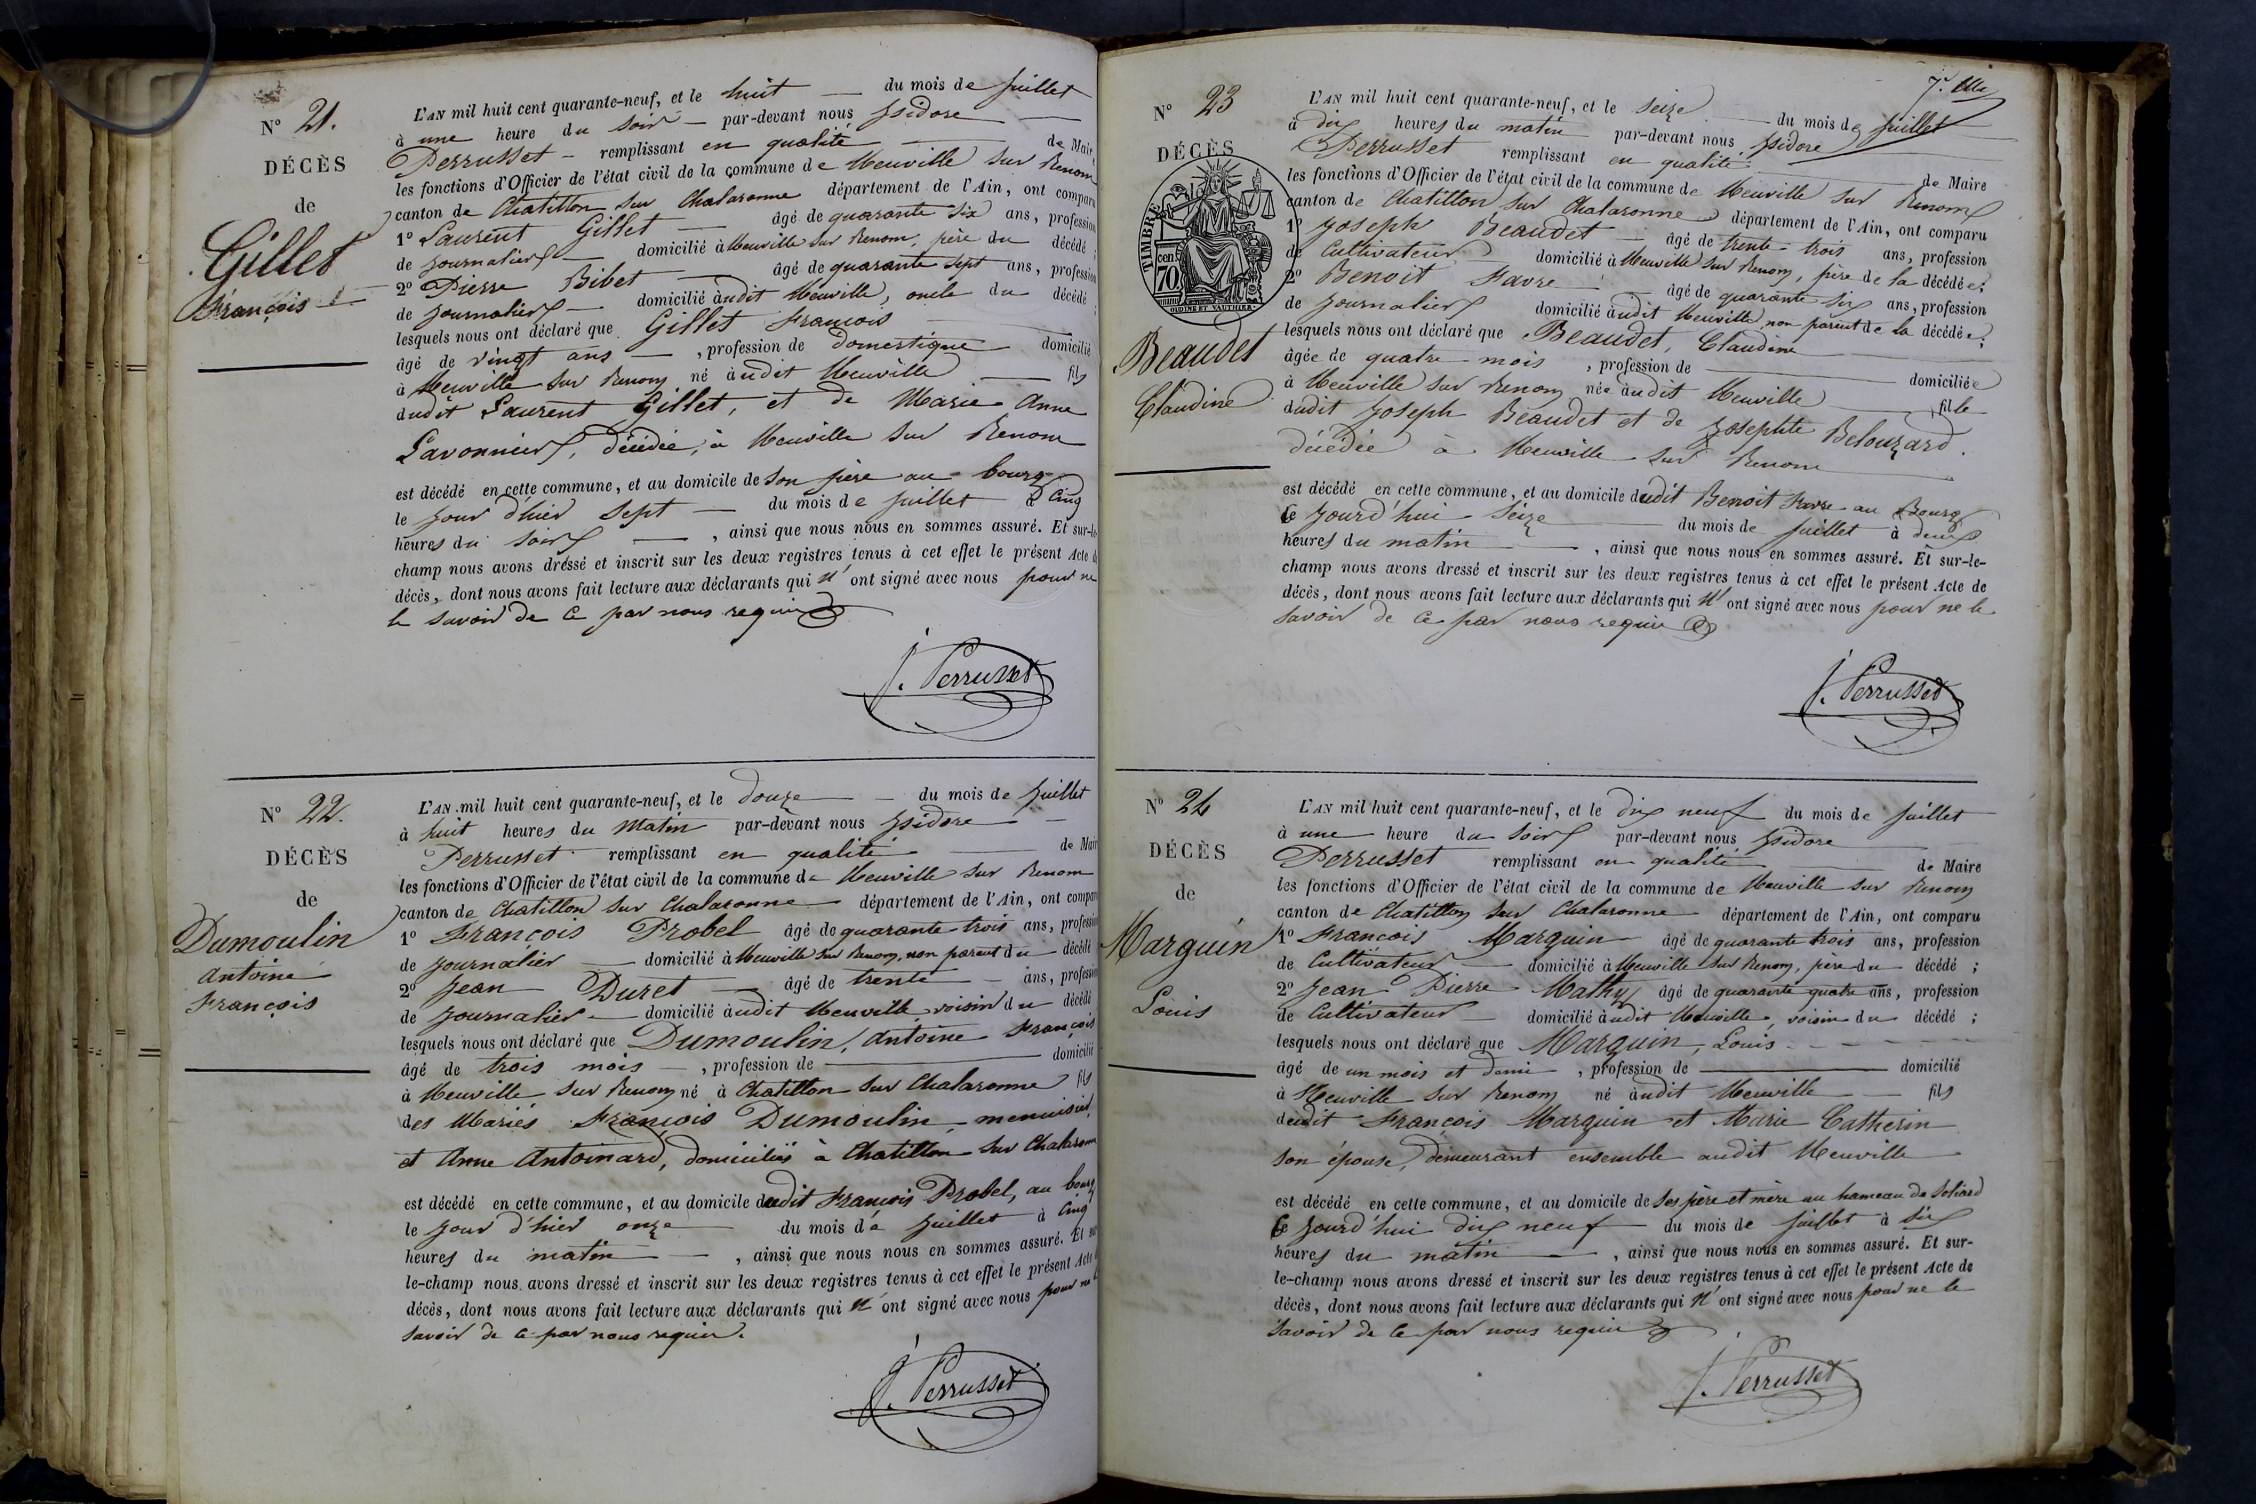 N° 21.
DÉCÈS
de
Gillet
François
L'AN mil huit cent quarante-neuf, et le huit du mois de juillet
à une heure du soir par-devant nous Isidore
Perrusset remplissant en qualité de Maire
les fonctions d'Officier de l'état civil de la commune de Neuville sur Renom
canton de Chatillon sur Chalaronne département de l'Ain, ont comparu
1° Laurent Gillet âgé de quarante six ans, profession
de journalier domicilié à Neuville sur Renom, père du décédé ;
2° Pierre Bibet âgé de quarante sept ans, profession
de journalier domicilié audit Neuville, oncle du décédé ;
lesquels nous ont déclaré que Gillet François
âgé de vingt ans, profession de domestique domicilié
à Neuville sur Renom né audit Neuville fils
dudit Laurent Gillet, et de Marie Anne
Lavonnier, décédée, à Neuville sur Renom
est décédé en cette commune, et au domicile de son père au bourg
le jour d'hier sept du mois de juillet à cinq
heures du soir, ainsi que nous nous en sommes assuré. Et sur-le-
champ nous avons dressé et inscrit sur les deux registres tenus à cet effet le présent Acte de
décès, dont nous avons fait lecture aux déclarants qui n'ont signé avec nous pour ne
le savoir de ce par nous requis
J. Perrusset
N° 22.
DÉCÈS
de
Dumoulin
Antoine
François
L'AN mil huit cent quarante-neuf, et le douze du mois de juillet
à huit heures du matin par-devant nous Isidore
Perrusset remplissant en qualité de Maire
les fonctions d'Officier de l'état civil de la commune de Neuville sur Renom
canton de Chatillon sur Chalaronne département de l'Ain, ont comparu
1° François Probel âgé de quarante trois ans, profession
de journalier domicilié à Neuville sur Renom, non parent du décédé
2° Jean Duret âgé de trente ans, profession
de journalier domicilié audit Neuville voisin du décédé
lesquels nous ont déclaré que Dumoulin, Antoine François
âgé de trois mois, profession de domicilié
à Neuville sur Renom né à Chatillon sur Chalaronne fils
des mariés François Dumoulin menuisier,
et Anne Antoinard, domiciliés à Chatillon sur Chalaronne
est décédé en cette commune, et au domicile dudit François Probel, au bourg
le jour d'hier onze du mois de juillet à cinq
heures du matin, ainsi que nous nous en sommes assuré. Et sur
le-champ nous avons dressé et inscrit sur les deux registres tenus à cet effet le présent Acte
décès, dont nous avons fait lecture aux déclarants qui n'ont signé avec nous pour ne le
savoir de ce par nous requis.
J. Perrusset
N° 23
DÉCÈS
TIMBRE
70 cen
OUDINÉ ET VAUTHIER
Beaudet
Claudine
L'AN mil huit cent quarante-neuf, et le seize du mois de juillet
à dix heures du matin par-devant nous Isidore
Perrusset remplissant en qualité de Maire
les fonctions d'Officier de l'état civil de la commune de Neuville sur Renom
canton de Chatillon sur Chalaronne département de l'Ain, ont comparu
1° Joseph Beaudet âgé de trente trois ans, profession
de cultivateur domicilié à Neuville sur Renom, père de la décédée ;
2° Benoit Favre âgé de quarante six ans, profession
de journalier domicilié audit Neuville non parent de la décédée ;
lesquels nous ont déclaré que Beaudet, Claudine
âgée de quatre mois, profession de domiciliée
à Neuville sur Renom née audit Neuville fille
dudit Joseph Beaudet et de Josephte Belouzard.
décédée à Neuville sur Renom
est décédé en cette commune, et au domicile dudit Benoit Favre au Bourg
ce jourd'hui seize du mois de juillet à deux
heures du matin, ainsi que nous nous en sommes assuré. Et sur-le-
champ nous avons dressé et inscrit sur les deux registres tenus à cet effet le présent Acte de
décès, dont nous avons fait lecture aux déclarants qui n'ont signé avec nous pour ne le
savoir de ce par nous requis
J. Perrusset
N° 24
DÉCÈS
de
Marguin
Louis
L'AN mil huit cent quarante-neuf, et le dix neuf du mois de juillet
à une heure du soir par-devant nous Isidore
Perrusset remplissant en qualité de Maire
les fonctions d'Officier de l'état civil de la commune de Neuville sur Renom
canton de Chatillon sur Chalaronne département de l'Ain, ont comparu
1° François Marguin âgé de quarante trois ans, profession
de cultivateur domicilié à Neuville sur Renom, père du décédé ;
2° Jean Pierre Mathy âgé de quarante quatre ans, profession
de cultivateur domicilié audit Neuville, voisin du décédé ;
lesquels nous ont déclaré que Marguin, Louis
âgé de un mois et demi, profession de domicilié
à Neuville sur Renom né audit Neuville fils
dudit François Marguin et Marie Catherin
son épouse, demeurant ensemble audit Neuville
est décédé en cette commune, et au domicile de ses père et mère au hameau de Soliard
ce jourd'hui dix neuf du mois de juillet à six
heures du matin, ainsi que nous nous en sommes assuré. Et sur-
le-champ nous avons dressé et inscrit sur les deux registres tenus à cet effet le présent Acte de
décès, dont nous avons fait lecture aux déclarants qui n'ont signé avec nous pour ne le
savoir de ce par nous requis
J. Perrusset